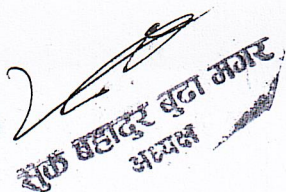 सुक बहादुर बुढा मगर
अध्यक्ष